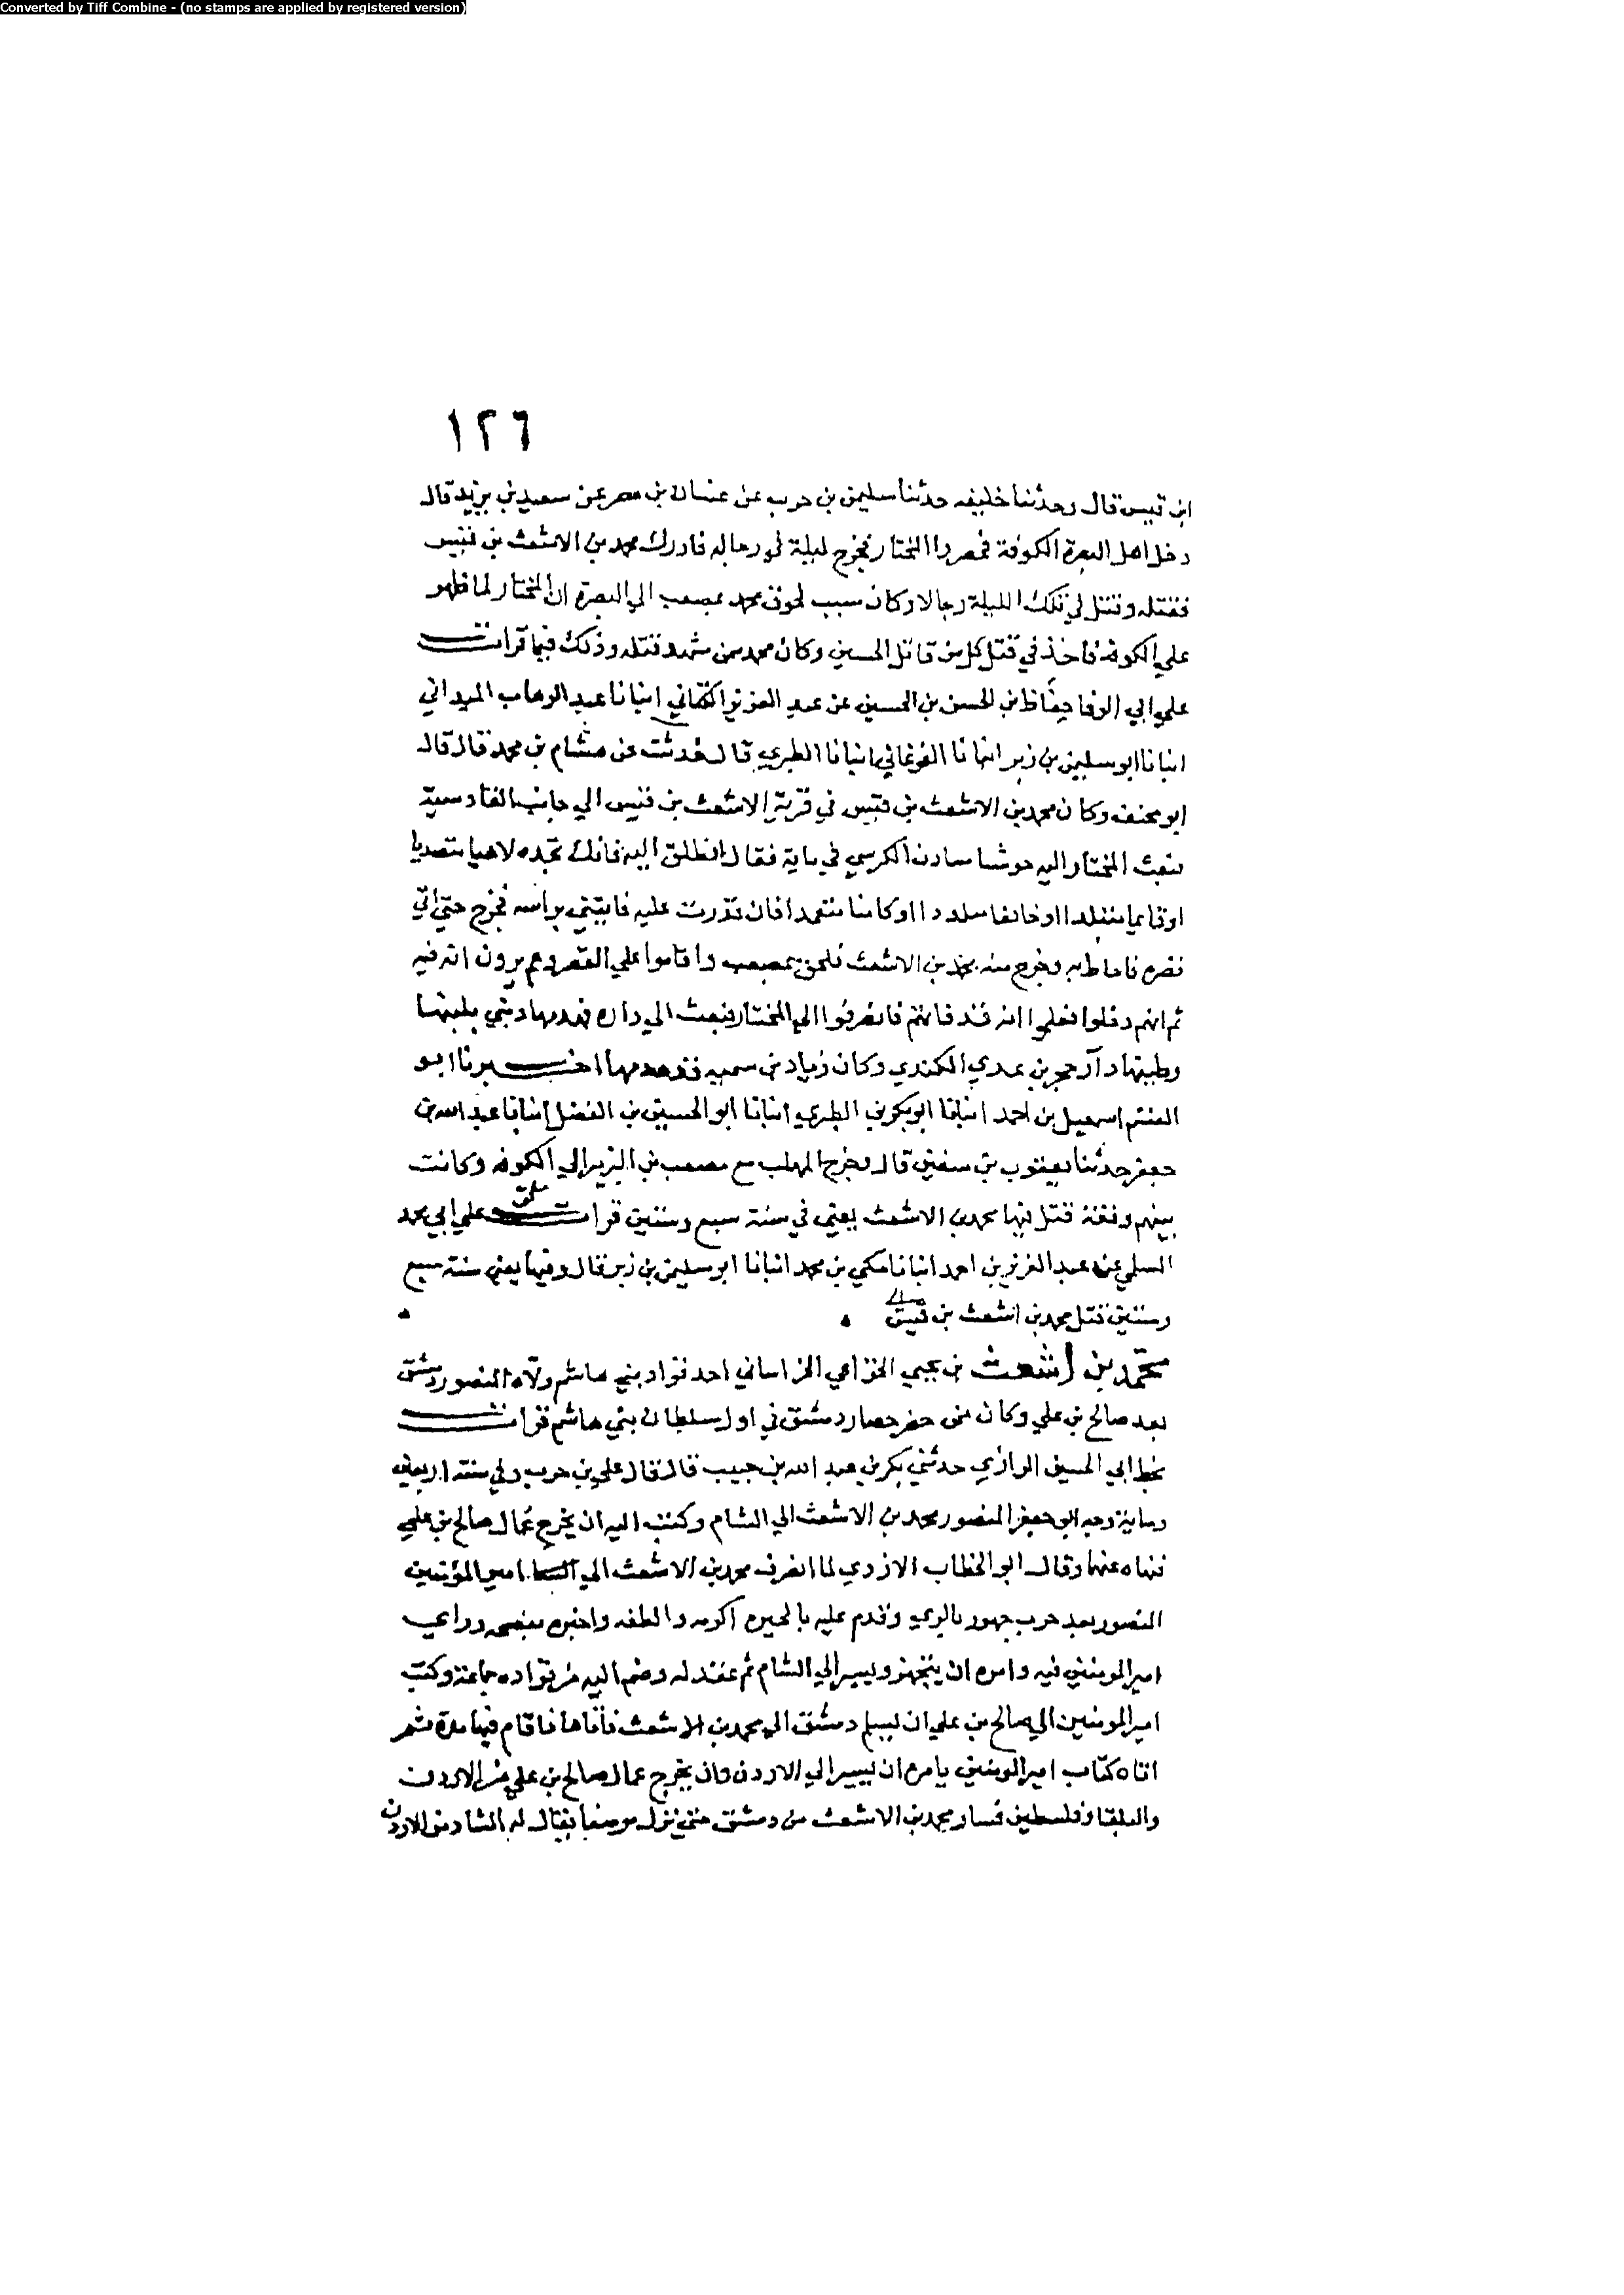 Converted by Tiff Combine - (no stamps are applied by registered version)
١٢٦
ابن قيس قال وحدثنا خليفه حدثنا سليمن بن حرب عن غسان بن مضر عن سعيد بن يزيد قال
دخل اهل البصرة الكوفة فحصروا المختار فخرج ليلة في رجاله فادرك محمد بن الاشعث بن قيس
فقتله وقتل في تلك الليلة رجالا وكان سبب لحوق محمد بمصعب الي البصرة ان المختار لما ظهر
علي الكوفة فاخذ في قتل كل من قاتل الحسين وكان محمد ممن شهد قتله وذلك فيما قرات
علي ابي الوفا حفاظ بن الحسن بن الحسين عن عبد العزيز الكتاني انبانا عبد الوهاب الميداني
انبانا ابو سليمن بن زبر انبانا الفرغاني انبانا الطبري قال حدثت عن هشام بن محمد قال قال
ابو مخنف وكان محمد بن الاشعث بن قيس في قرية الاشعث بن قيس الي جانب القادسية
فبعث المختار اليه حوشبا سادن الكرسي في ماية فقال انطلق اليه فانك تجده لاهيا متصديا
او قايما متبلدا او خايفا متلددا او كامنا متعمدا فان قدرت عليه فايتني براسه فخرج حتي اتي
قصره فاحاط به وخرج منه محمد بن الاشعث فلحق بمصعب واقاموا علي القصر وهم يرون انه فيه
ثم انهم دخلوا فعلموا انه قد فاتهم فانصرفوا الي المختار فبعث الي داره فهدمها وبني بلبنها
وطينها دار حجر بن عدي الكندي وكان زياد بن سميه قد هدمها اخبرنا ابو
القسم اسمعيل بن احمد انبانا ابو بكر بن الطبري انبانا ابو الحسين بن الفضل انبانا عبد الله بن
جعفر حدثنا يعقوب بن سفين قال وخرج المهلب مع مصعب بن الزبير الي الكوفه وكانت
بينهم وقعة قتل فيها محمد بن الاشعث يعني في سنة سبع وستين قرات علي ابي محمد
السلمي عن عبد العزيز بن احمد انبانا مكي بن محمد انبانا ابو سليمن بن زبر قال وفيها يعني سنة سبع
وستين قتل محمد بن اشعث بن قيس
محمد بن اشعث بن يحيي الخزاعي الخراساني احد قواد بني هاشم ولاه المنصور دمشق
بعد صالح بن علي وكان ممن حضر حصار دمشق في اول سلطان بني هاشم قرات
بخط ابي الحسين الرازي حدثني بكر بن عبد الله بن حبيب قال قال علي بن حرب وفي سنة اربعين
وماية وجه ابو جعفر المنصور محمد بن الاشعث الي الشام وكتب اليه ان يخرج عمال صالح بن علي
فنهاه عنها وقال ابو الخطاب الازدي لما انصرف محمد بن الاشعث الي امير المؤمنين
المنصور بعد حرب جهور بالري وقدم عليه بالحيره اكرمه والطفه واخبره وراي
امير المومنين فيه وامره ان يتجهز ويسير الي الشام ثم عقد له وضم اليه من قواده جماعة وكتب
امير المومنين الي صالح بن علي ان يسلم دمشق الي محمد بن الاشعث فأتاها فاقام فيها مدة ثم
اتاه كتاب امير المومنين يامره ان يسير الي الاردن وان يخرج عمال صالح بن علي من الاردن
والبلقا وفلسطين فسار محمد بن الاشعث من دمشق حتي نزل موضعا يقال له من الاردن